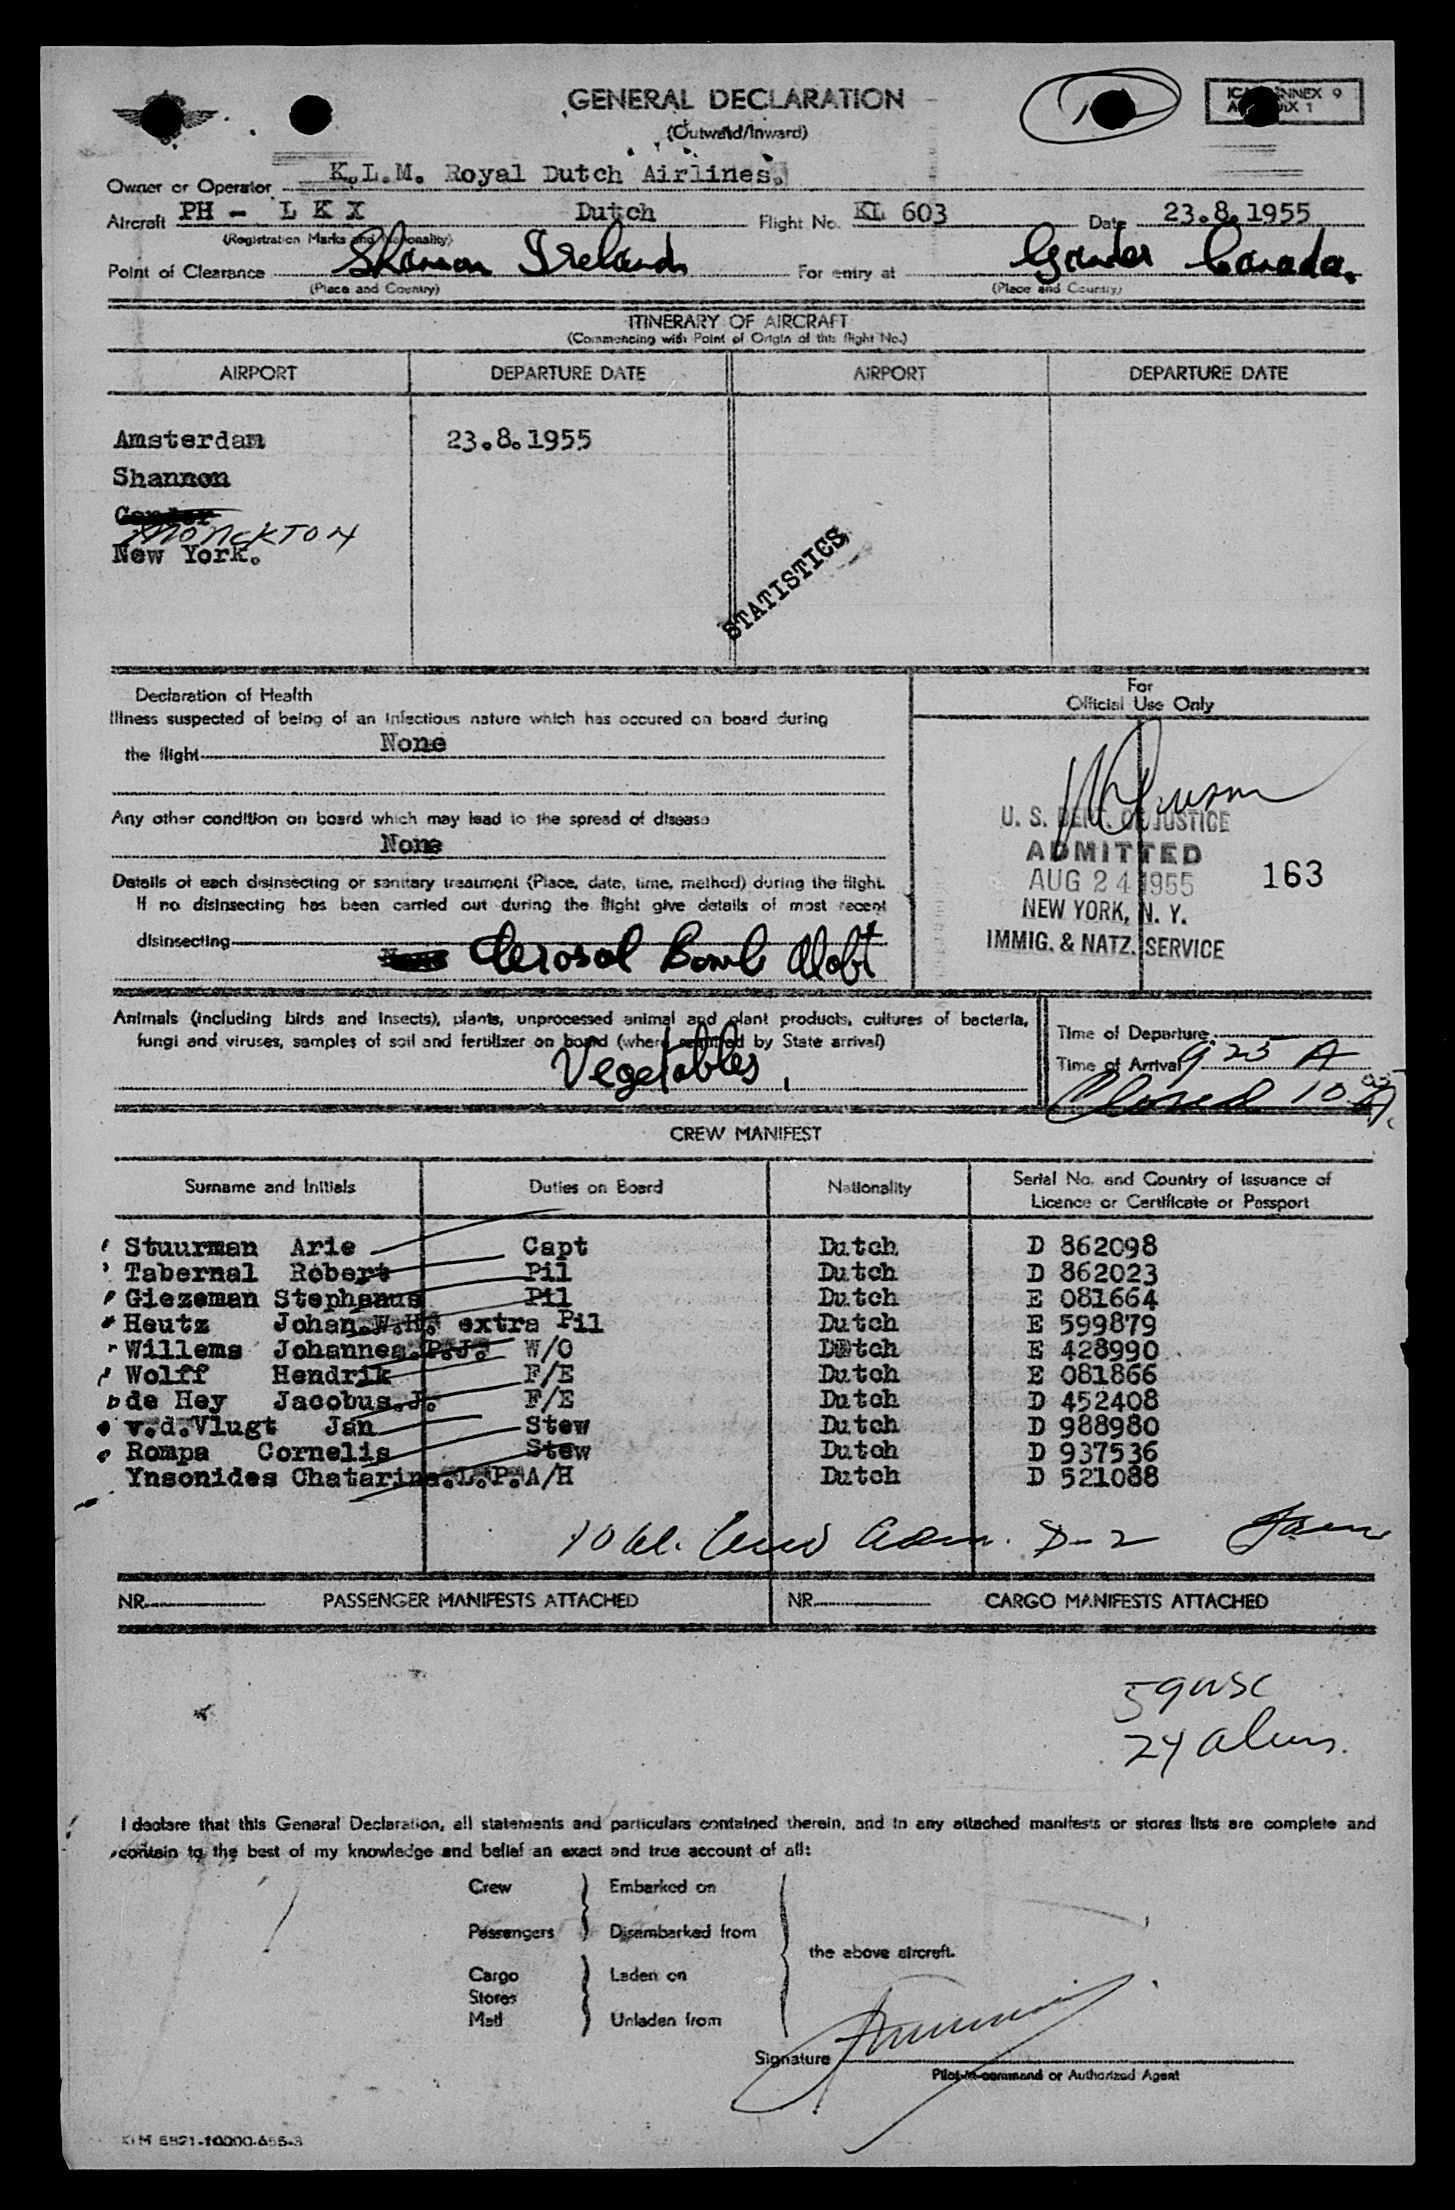 GENERAL DECLARATION
(Outward/Inward)
ANNEX 9
1
Owner or Operator K.L.M. Royal Dutch Airlines.
Aircraft PH - L K X Dutch Flight No. KL 603 Date 23.8.1955
(Registration Marks and Nationality)
Point of Clearance Shannon Ireland For entry at Gander Canada.
(Place and Country) (Place and Country)
ITINERARY OF AIRCRAFT
(Commencing with Point of Origin of this flight No.)
AIRPORT DEPARTURE DATE AIRPORT DEPARTURE DATE
Amsterdam 23.8.1955
Shannon
Gander
MONCKTON
New York.
STATISTICS
Declaration of Health
Illness suspected of being of an infectious nature which has occured on board during
the flight None
Any other condition on board which may lead to the spread of disease
None
Details of each disinsecting or sanitary treatment (Place, date, time, method) during the flight.
If no disinsecting has been carried out during the flight give details of most recent
disinsecting None Aerosol Bomb
For
Official Use Only
U. S. DEPT. OF JUSTICE
ADMITTED
AUG 24 1955 163
NEW YORK, N. Y.
IMMIG. & NATZ. SERVICE
Animals (including birds and insects), plants, unprocessed animal and plant products, cultures of bacteria,
fungi and viruses, samples of soil and fertilizer on board (where required by State arrival)
Vegetables
Time of Departure
Time of Arrival 925 A
Closed 10
CREW MANIFEST
Surname and Initials Duties on Board Nationality Serial No. and Country of Issuance of
Licence or Certificate or Passport
Stuurman Arie Capt Dutch D 862098
Tabernal Robert Pil Dutch D 862023
Giezeman Stephanus Pil Dutch E 081664
Heutz Johan.W.H. extra Pil Dutch E 599879
Willems Johannes.P.J. W/O Dutch E 428990
Wolff Hendrik F/E Dutch E 081866
de Hey Jacobus.J. F/E Dutch D 452408
v.d.Vlugt Jan Stew Dutch D 988980
Rompa Cornelis Stew Dutch D 937536
Ynsonides Chatarina.L.P. A/H Dutch D 521088
10 al. Crew adm. D-2
NR. PASSENGER MANIFESTS ATTACHED NR. CARGO MANIFESTS ATTACHED
59 USC
24 aliens.
I declare that this General Declaration, all statements and particulars contained therein, and in any attached manifests or stores lists are complete and
contain to the best of my knowledge and belief an exact and true account of all:
Crew Embarked on
Passengers Disembarked from
the above aircraft.
Cargo Laden on
Stores
Mail Unladen from
Signature
Pilot-in-command or Authorized Agent
KLM 5821-10000-655-3